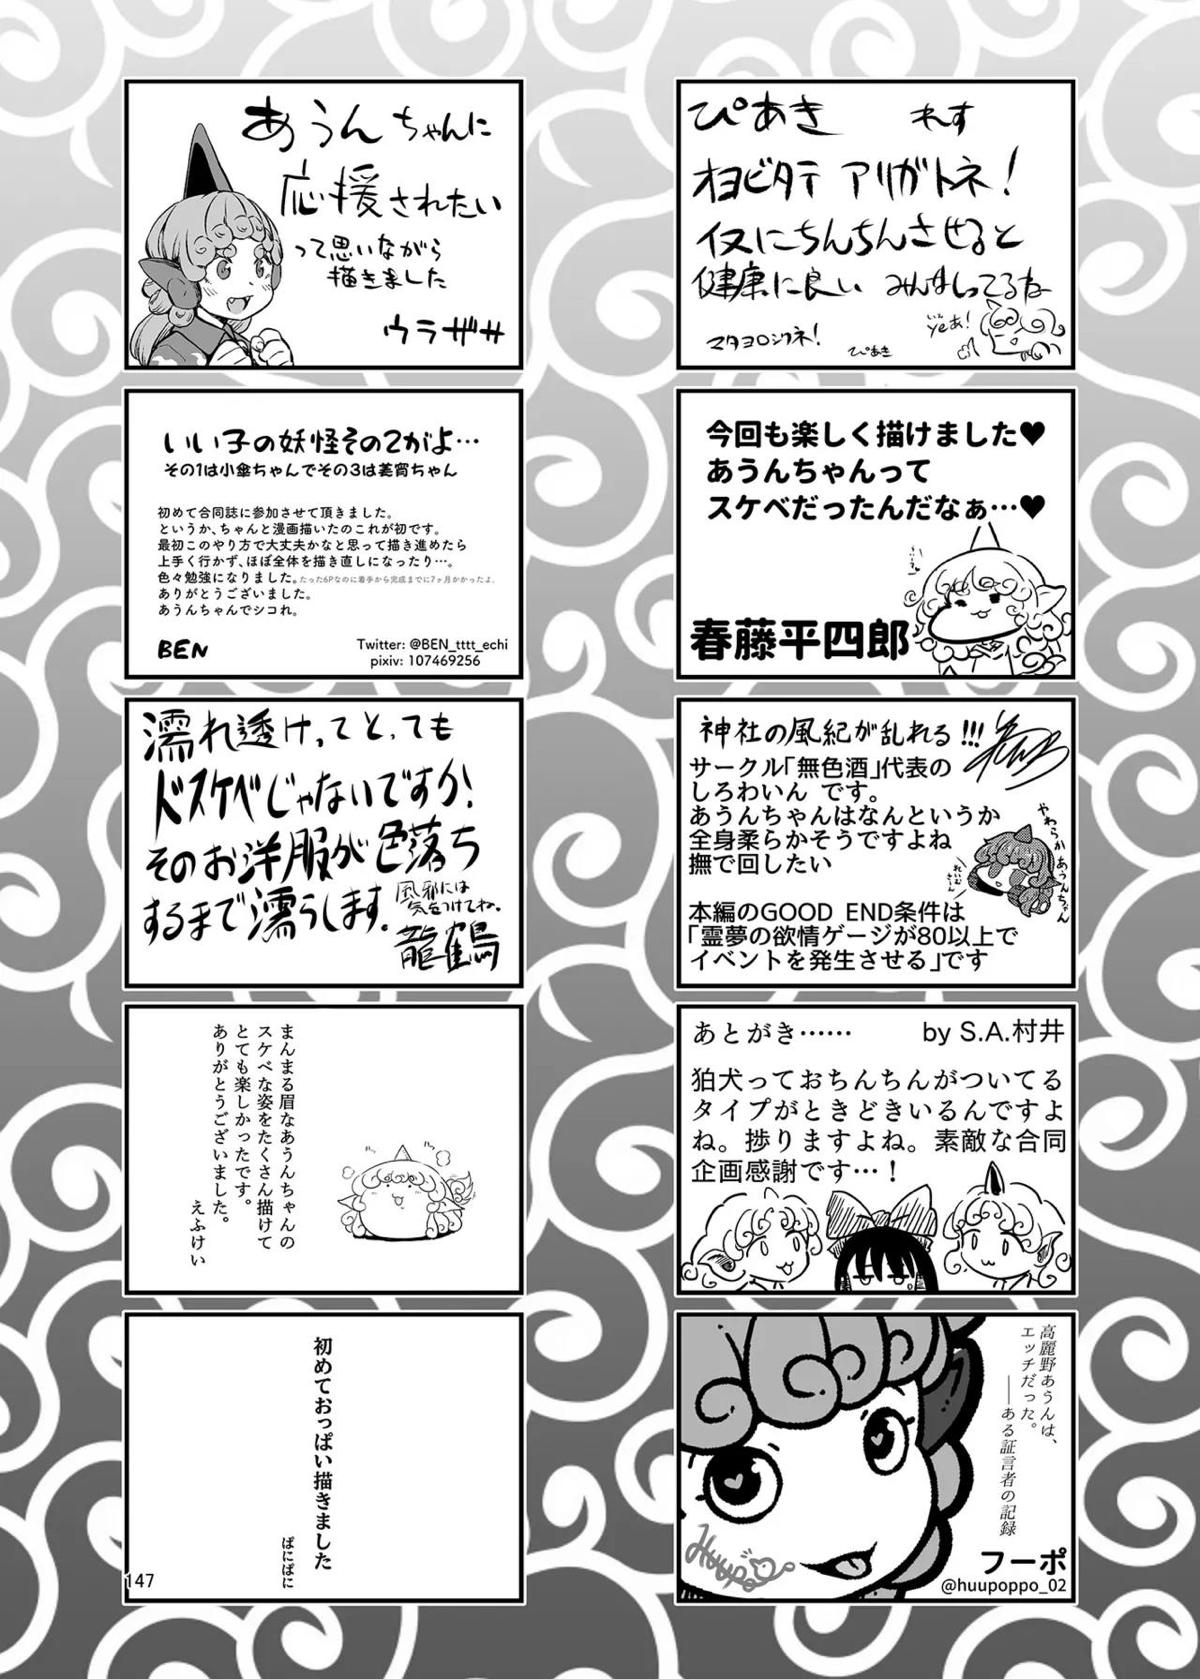 ぴあき れす
オヨビタテ アリガトネ!
仅にちんちんさせると
健康に良い みんなしってるね
いぇあ!
yeあ!
マタヨロシクネ!
ぴあき
今回も楽しく描けました♥
あうんちゃんって
スケベだったんだなぁ…♥
春藤平四郎
神社の風紀が乱れる!!!
サークル「無色酒」代表の
しろわいん です。
あうんちゃんはなんというか
全身柔らかそうですよね
撫で回したい
やわらかあうんちゃん
れいむさーん
本編のGOOD END条件は
「霊夢の欲情ゲージが80以上で
イベントを発生させる」です
あとがき…… by S.A.村井
狛犬っておちんちんがついてる
タイプがときどきいるんですよ
ね。捗りますよね。素敵な合同
企画感謝です…!
高麗野あうんは、
エッチだった。
――ある証言者の記録
Huupo
フーポ
@huupoppo_02
あうんちゃんに
応援されたい
って思いながら
描きました
ウラザサ
いい子の妖怪その2がよ…
その1は小傘ちゃんでその3は美宵ちゃん
初めて合同誌に参加させて頂きました。
というか、ちゃんと漫画描いたのこれが初です。
最初このやり方で大丈夫かなと思って描き進めたら
上手く行かず、ほぼ全体を描き直しになったり…。
色々勉強になりました。たった6Pなのに着手から完成までに7ヶ月かかったよ。
ありがとうございました。
あうんちゃんでシコれ。
BEN
Twitter: @BEN_tttt_echi
pixiv: 107469256
濡れ透けってとっても
ドスケベじゃないですか!
そのお洋服が色落ち
するまで濡らします。
風邪には
気をつけてね。
龍鶴
まんまる眉なあうんちゃんの
スケベな姿をたくさん描けて
とても楽しかったです。
ありがとうございました。
えふけい
初めておっぱい描きました
ぱにぱに
147